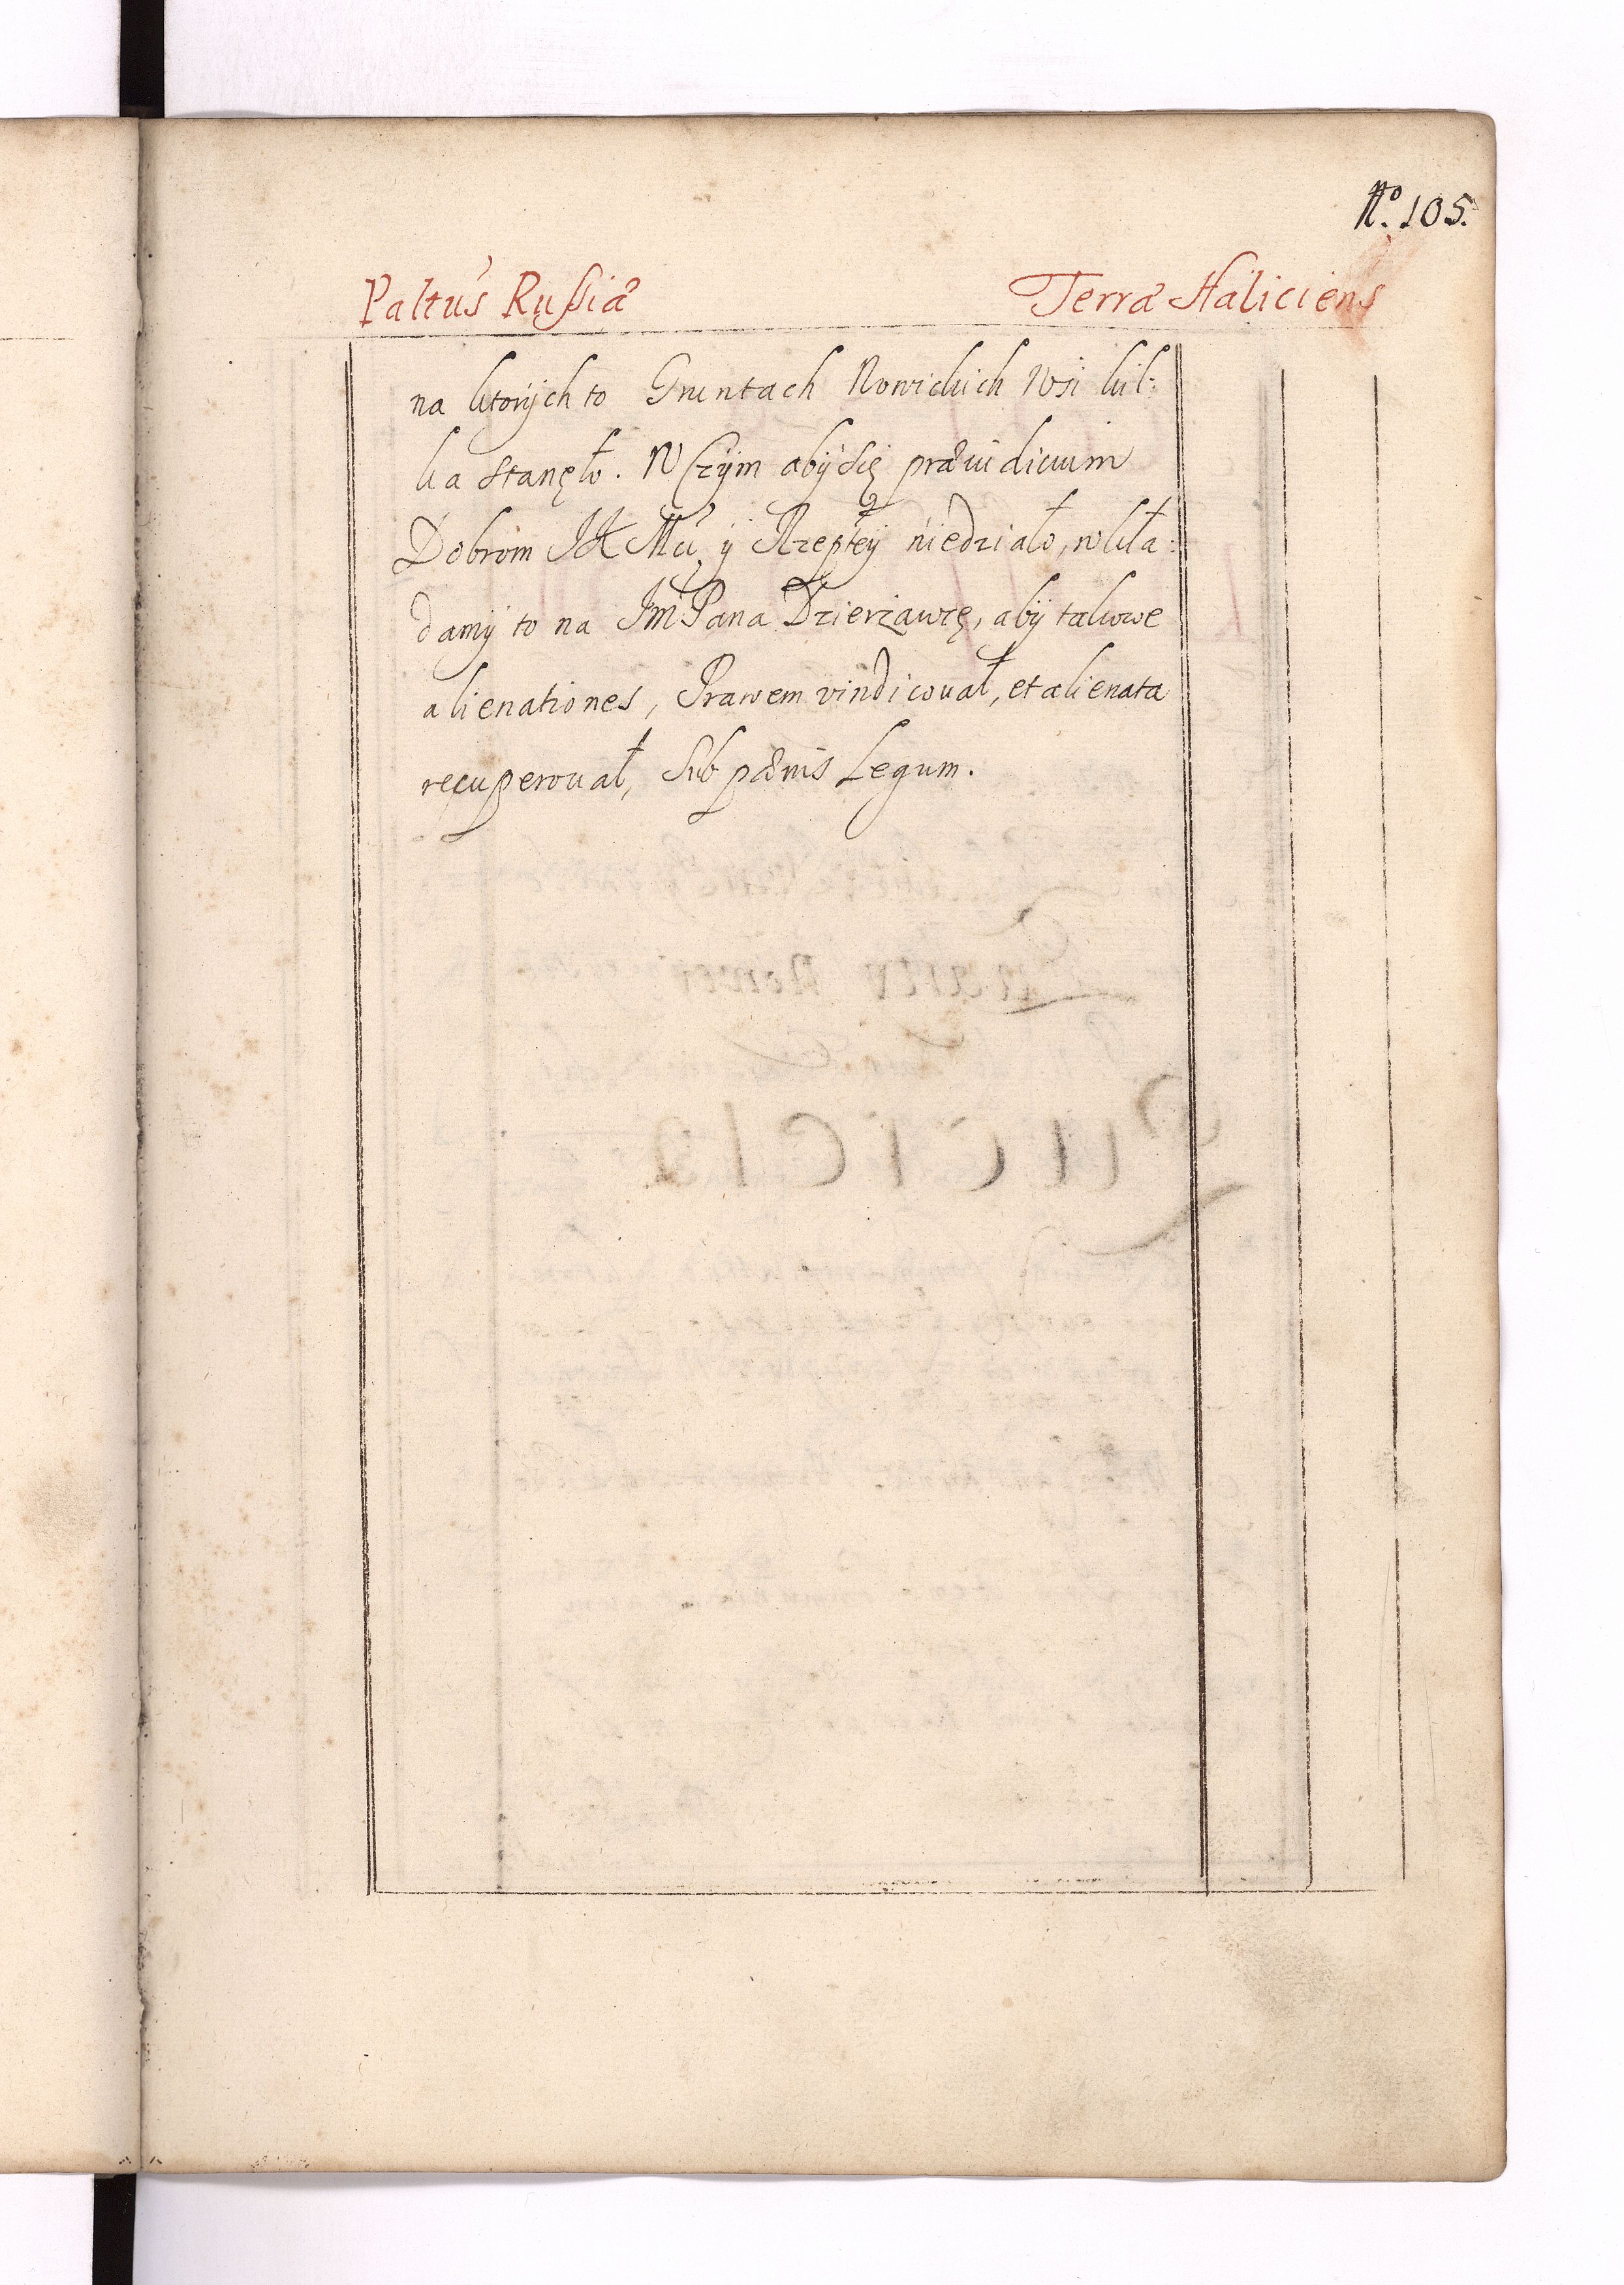 No. 105.
Paltus Russiæ Terræ Haliciens
na ktorÿch to Gruntach Nowickich Wsi kil:
ka stanęło. W Czÿm abÿ się præiudicium
Dobrom JK Mci ÿ Rzeptеÿ niedziało, wkła:
damÿ to na Jm Pana Dzierzawcę, abÿ takowe
alienationes, Prawem vindicował, et alienata
recuperował, Sub pænis Legum.